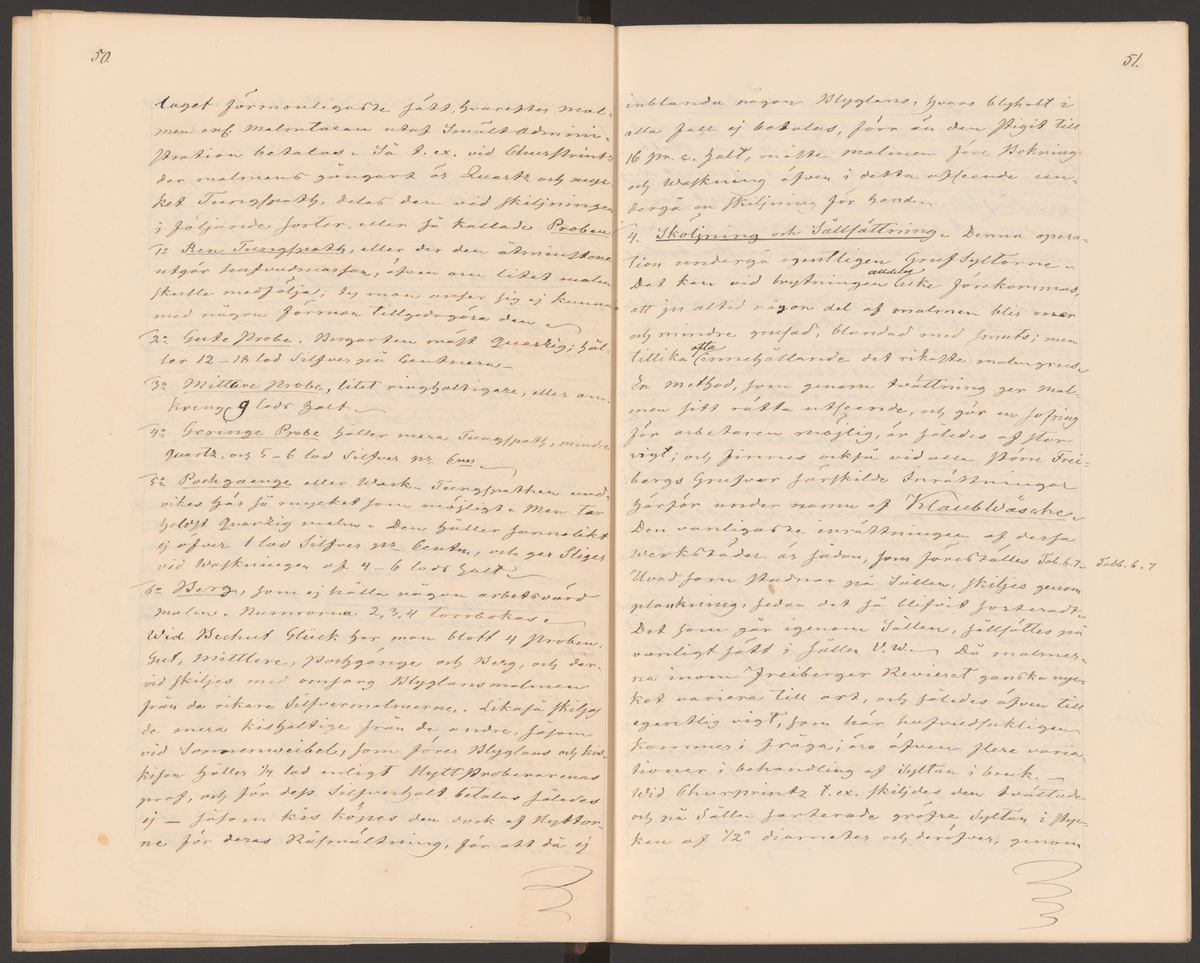 50.
laget förmonligaste sätt, hvarefter mal-
men enl. Malmtaxan utaf Smält Admini-
stration betalas. Så t. ex. vid Churprintz
der malmens gångart är Quartz och myc-
ket Tungspath, delas den vid skiljningen
i följande sorter, eller så kallade Proben
1o Ren Tungspath, eller der den åtminstone
utgör hufvudmassan, äfven om litet malm
skulle medfölja; ty man anser sig ej kunna
med någon förmon tillgodogöra den
2o Gute Probe. Bergarten mäst Quarzig; hål-
ler 12-18 lod Silfver på Centnern
3o Mittlere Probe, litet ringhaltigare, eller om-
kring 9 lods halt.
4o Geringe Probe håller mera Tungspath, mindre
Quartz, och 5-6 lod Silfver pr
5o Pochgaenge eller Wask. Tungspathen und-
vikes här så mycket som möjligt. Man tar
heldst Quarzig malm. Den håller sannolikt
ej öfver 1 lod Silfver pr Centn., och ger Sliger
vid Waskningen af 4-6 lods halt
6o Berg, som ej hålla någon arbetsvärd
malm. Numrorna 2, 3, 4 torrbokas.
Wid Beschert Glück har man blott 4 Proben:
Gut, Mittlere, Pochgänge och Berg, och der-
vid skiljes med omsorg Blyglansmalmen
från de rikare Silfvermalmerne. Likaså skiljas
de mera kishaltige från de andre, såsom
vid Sonnenweibel, som förer Blyglans och kis.
Kisen håller 1/4 lod enligt Hyttproberarenas
prof, och för dess Silfverhalt betalas således
ej — såsom kis köpes den dock af Hyttor-
ne för deras Råsmältning, för att då ej
51.
inblanda någon Blyglans, hvars blyhalt i
alla fall ej betalas, förr än den stigit till
16 pr. c. halt, måste malmen före Bokning
och Waskning äfven i detta afseende un-
dergå en skiljning för hand.
4. Sköljning och Sällsättning. Denna opera-
tion undergå egentligen GrufSyltorne.
alldeles
Det kan vid brytningen icke förekommas,
att ju altid någon del af malmen blir mer
och mindre grusad, blandad med smuts; men
ofta
tillika innehållande det rikaste malmgruset
En method, som genom tvättning ger mal-
men sitt rätta utseende, och gör en sofring
för arbetaren möjlig, är således af stor
vigt; och finnes också vid alla större Frei-
bergs Grufvor särskilde Inrättningar
härför under namn af Klaubwäsche.
Den vanligaste inrättningen af dessa
werkstäder är sådan, som föreställes Tab. 6. 7. Tabb. 6. 7
Hvad som stadnar på Sållen, skiljes genom
plockning, sedan det så blifvit sorteradt.
Det som går igenom Sållen, sållsättes på
vanligt sätt i såller V. W. Då malmer-
na inom Freiberger Revieret ganska myc-
ket variera till art, och således äfven till
egentlig vigt, som här hufvudsakligen
kommer i fråga; äro äfven flere varia-
tioner i behandling af Syltan i bruk. —
Wid Churprintz t. ex. skiljdes den tvättade
och på Sållen sorterade gröfre Syltan i styc-
ken af 1/2" diameter och deröfver, genom